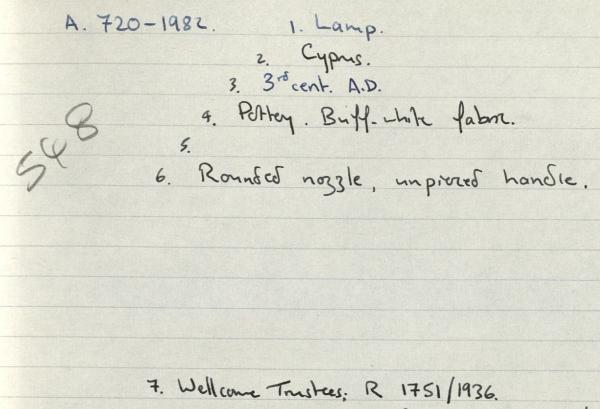 A. 720-1982. 1. Lamp.
2. Cyprus.
3. 3rd cent. A.D.
4. Pottery. Buff-white fabric.
5.
548
6. Rounded nozzle, unpierced handle.
7. Wellcome Trustees; R 1751/1936.